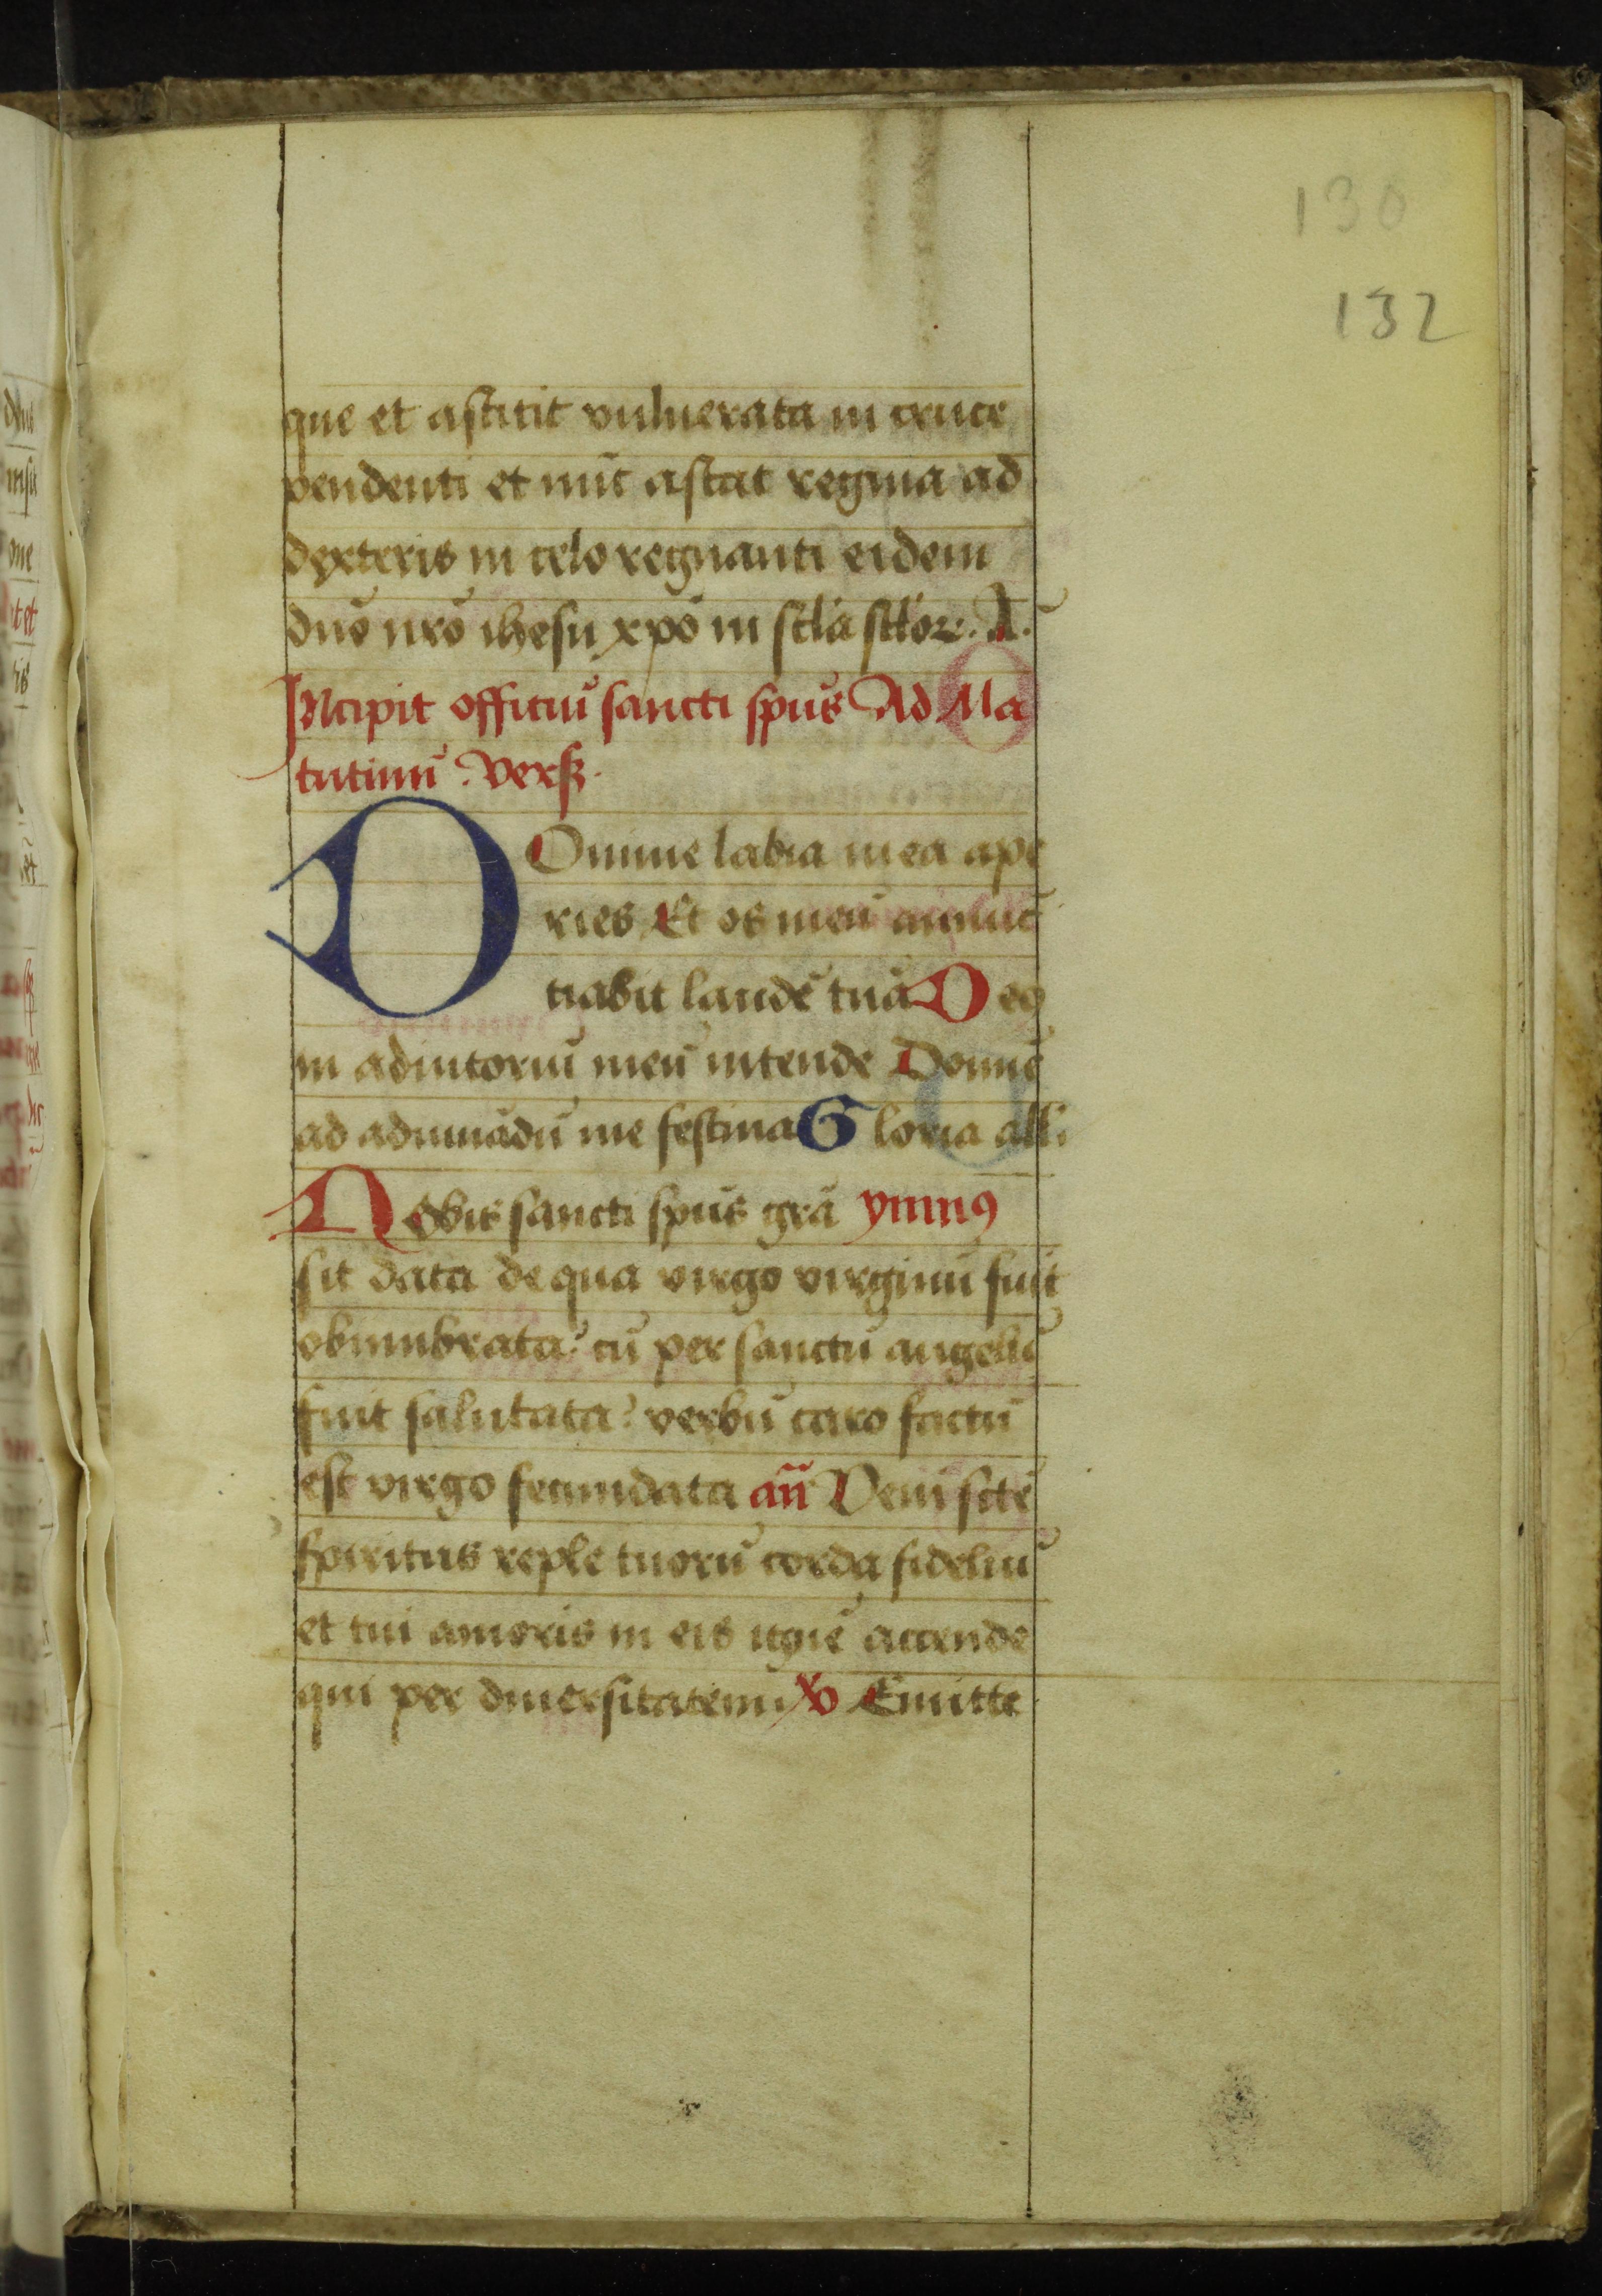 130
132
que et astitit vulnerata in cruce
pendenti et nūc astat regina ad
dexteris in celo regnanti eidem
dn̄o nr̄o ihesu xp̄o in scl̄a scl̄oꝝ. A.
Incipit offitiū sancti sp̄us Ad Ma
tutinū. vers.
DOmine labia mea ape
ries Et os meū annūc
tiabit laudē tuā Deꝰ
in adiutoriū meū intende Domīe
ad adiuuādū me festina Gloria all̄i
Nobis sancti sp̄us gr̄a ymnꝰ
sit data de qua virgo virginū fuit
obumbrata: cū per sanctū angelū
fuit salutata: verbū caro factū
est virgo fecundata añ Veni sc̄te
spiritus reple tuorū corda fideliū
et tui amoris in eis ignē accende
qui per diuersitatem ℣ Emitte